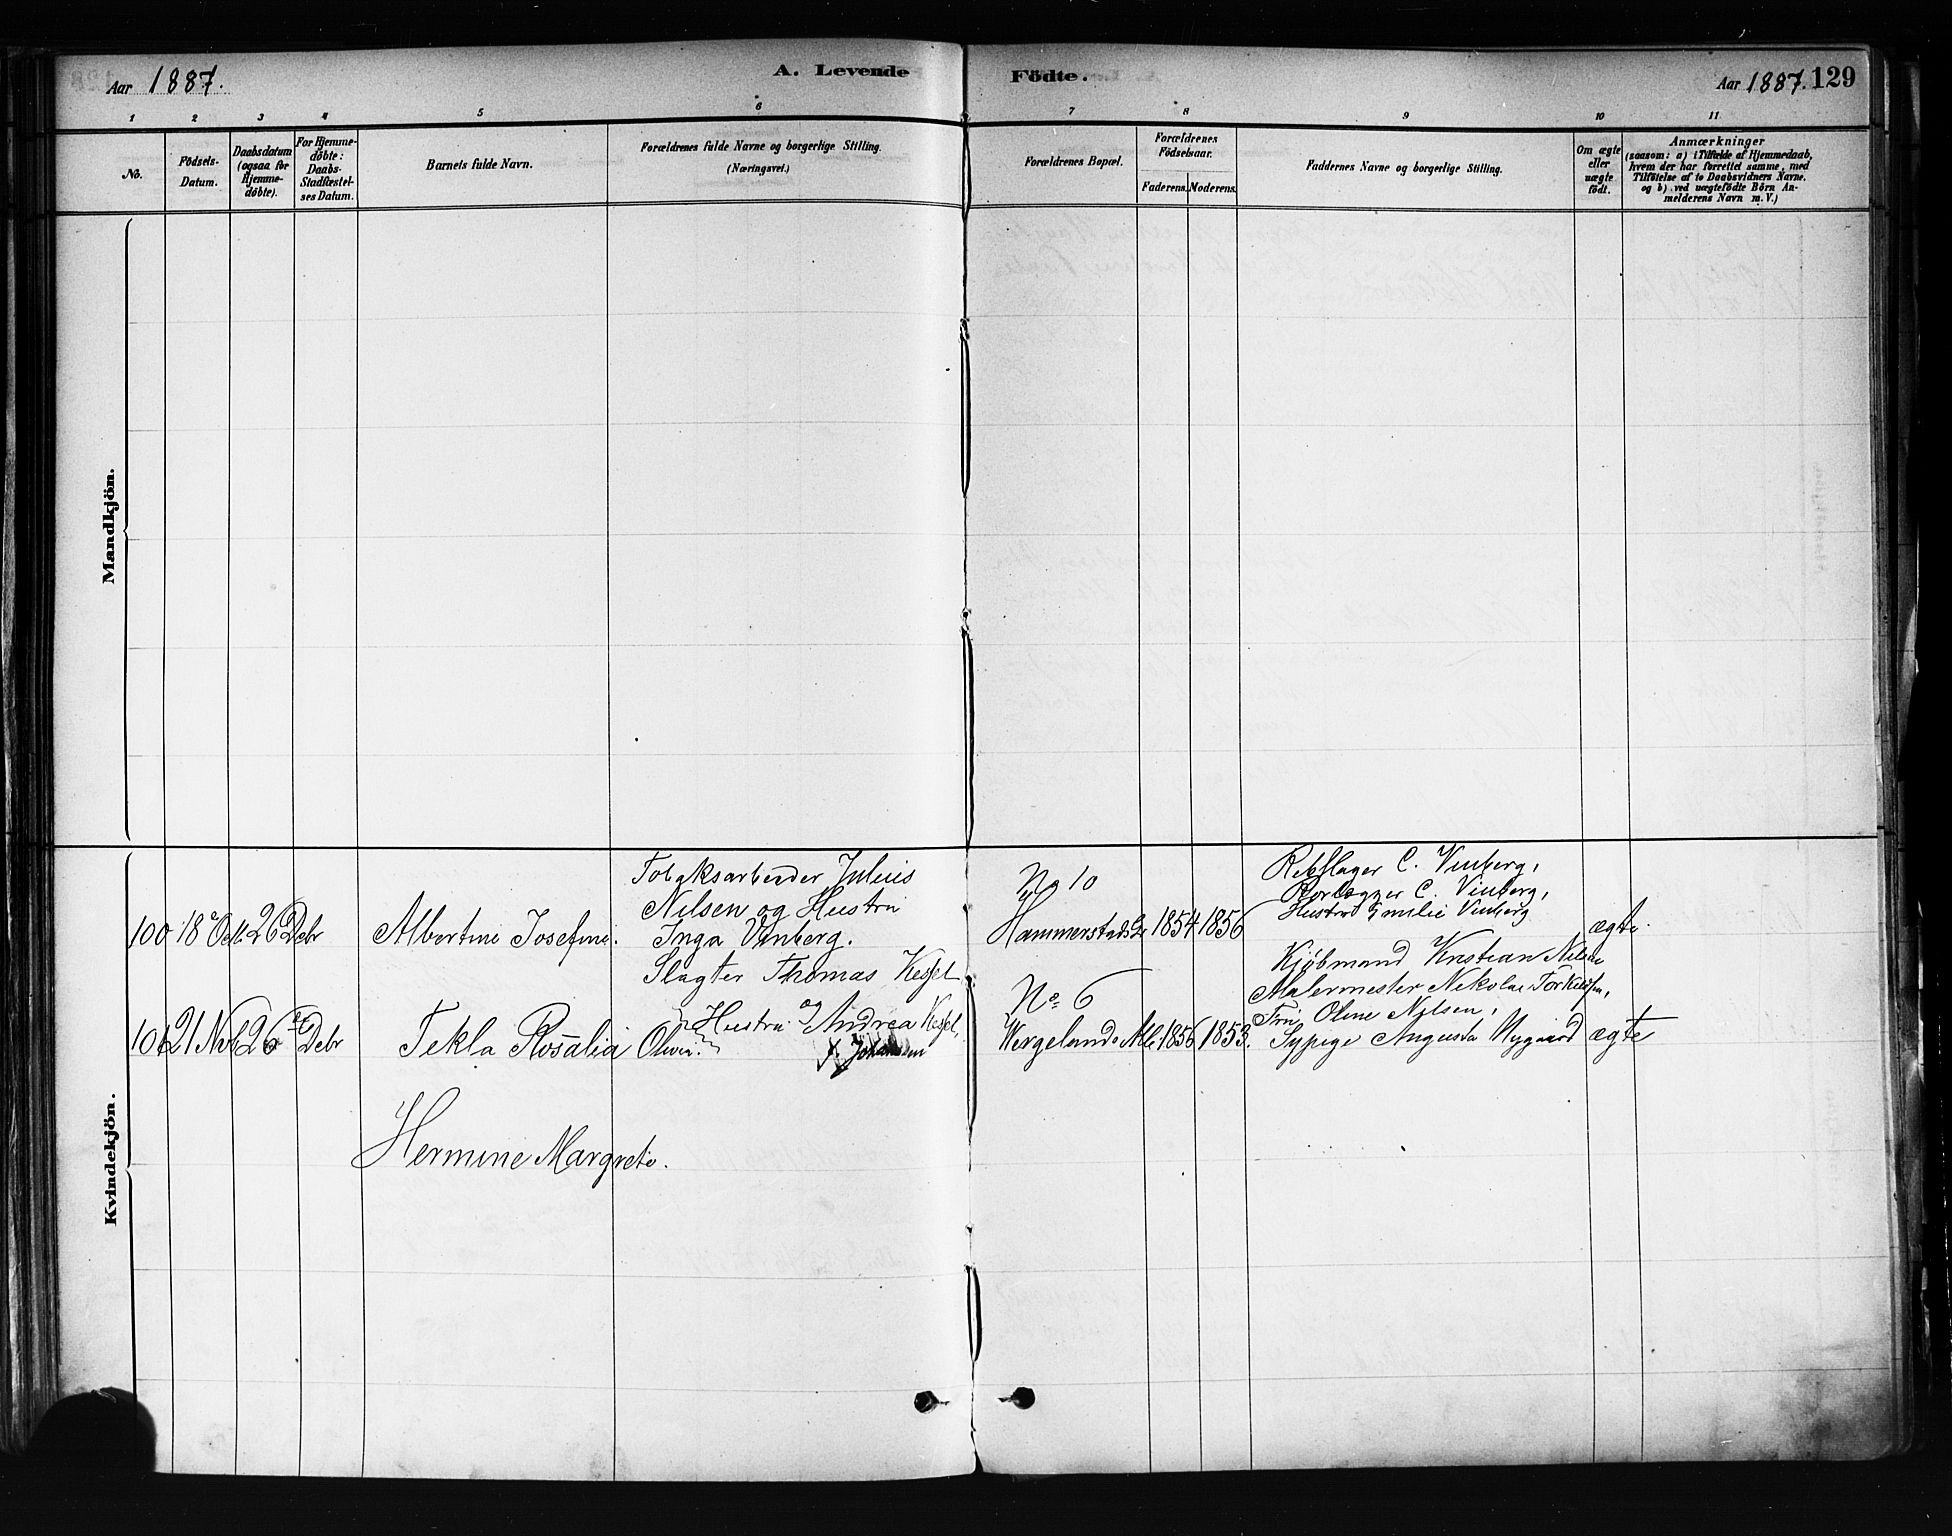 Aar 1887.
A. Levende
Födte.
Aar 1887. 129
1 2 3 4 5 6 7 8 9 10 11
No.
Födsels-
Datum.
Daabsdatum
(ogsaa for
Hjemme-
döbte).
For Hjemme-
döbte:
Daabs-
Stadfæstel-
ses Datum.
Barnets fulde Navn.
Forældrenes fulde Navne og borgerlige Stilling.
(Næringsvei.)
Forældrenes Bopæl.
Forældrenes
Födselsaar.
Faderens. Moderens.
Faddernes Navne og borgerlige Stilling.
Om ægte
eller
uægte
födt.
Anmærkninger
(saasom: a) i Tilfælde af Hjemmedaab,
hvem der har forrettet samme, med
Tilföielse af to Daabsvidners Navne.
og b) ved uægtefödte Börn An-
melderens Navn m. V.)
Mandkjön.
Kvindekjön.
100 18 Oct. 26 Debr
Albertine Josefine.
Tobaksarbeider Julius
Nilsen og Hustru
Inga Vinberg.
No 10
Hammerstads 1854 1856
Rebslager C. Vinberg,
C. Vinberg,
Hustru Emilie Vinberg
ægte.
21 Nov 26 Debr
Tekla Rosalia
Hermine Margrete.
Slagter Thomas Kessel
og
Hustru Andrea Kessel,
Olivie.
f. Johansen
No 6
Wergelands 1856 1853.
Kjöbmand Kristian Nilsen
Malermester Nikolai Torkildsen,
Fru Oline Nilsen,
Sypige Augusta Nygaard
ægte